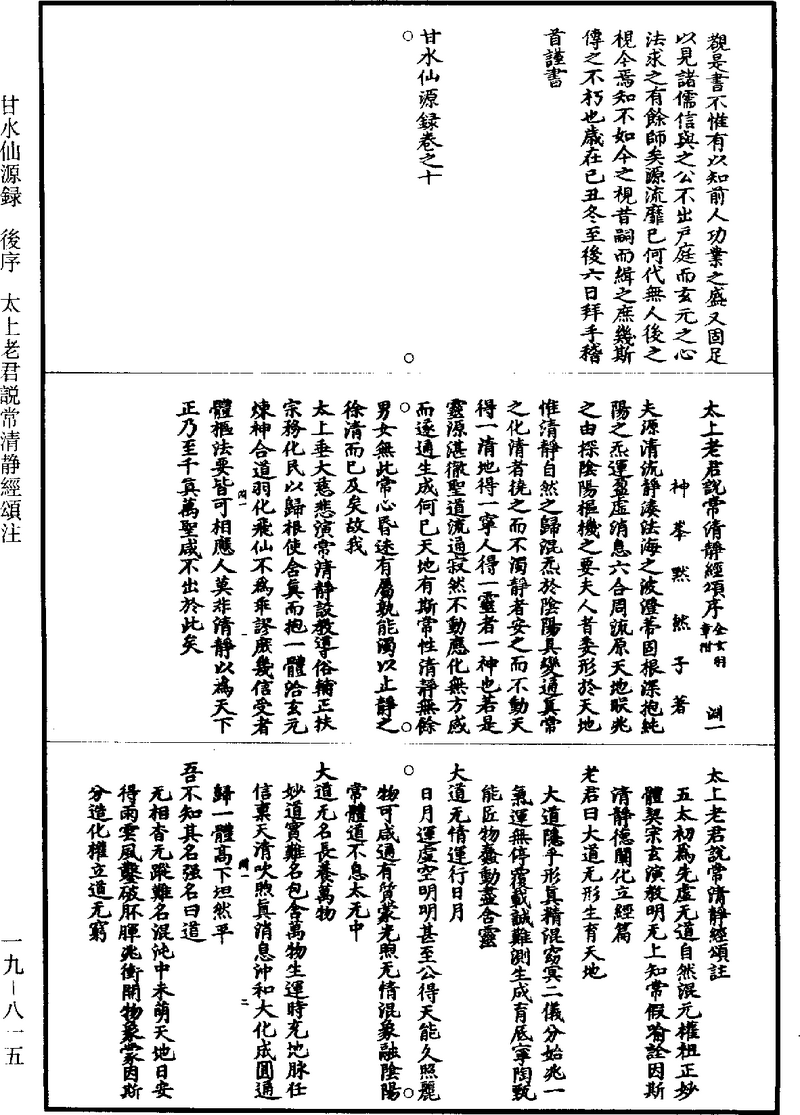 觀是書不惟有以知前人功業之盛又固足
以見諸儒信與之公不出戸庭而玄元之心
法求之有餘師矣源流靡已何代無人後之
視今焉知不如今之視昔嗣而緝之庶幾斯
傳之不朽也歲在己丑冬至後六日拜手稽
首謹書
甘水仙源録卷之十
太上老君說常清静經頌序 全女羽章附 淵一
神峯黙然子著
夫源清流静湊法海之波澄蔕固根深抱純
陽之炁運盈虛消息六合周流原天地眹兆
之由探陰陽樞機之要夫人者委形於天地
惟清静自然之歸混炁於陰陽具變通真常
之化清者撓之而不濁静者安之而不動天
得一清地得一寧人得一靈者一神也若是
靈源湛徹聖道流通寂然不動應化無方感
而遂通生成何已天地有斯常性清静無餘
男女無此常心昏迷有屬孰能濁以止静之
徐清而已及矣故我
太上垂大慈悲演常清静設教導俗輔正扶
宗務化民以歸根使含真而抱一體洽玄元
煉神合道羽化飛仙不爲乖謬庶幾信受者
體樞法要皆可相應人莫非清静以爲天下
正乃至千真萬聖咸不出於此矣
太上老君說常清静經頌註
五太初爲先虛无道自然混元權祖正妙
體契宗玄演教明无上知常假喻詮因斯
清静德闡化立經篇
老君曰大道无形生育天地
大道隱乎形真精混窈冥二儀分始兆一
氣運無停覆載誠難測生成育厎寧陶甄
能匠物蠢動盡含靈
大道无情運行日月
日月運虛空明明甚至公得天能久照麗
物可咸通有質蒙光照无情混象融陰陽
常體道不息太无中
大道无名長養萬物
妙道實難名包含萬物生運時充地脉任
信稟天清吹煦眞消息沖和大化成圓通
歸一體高下坦然平
吾不知其名强名曰道
无相杳无蹤難名混沌中未萌天地日安
得雨雲風鑿破胚腪兆衝開物象蒙因斯
分造化權立道无窮
淵一
一
淵一
二
甘水仙源録 後序 太上老君説常清静經頌注
一九－八一五